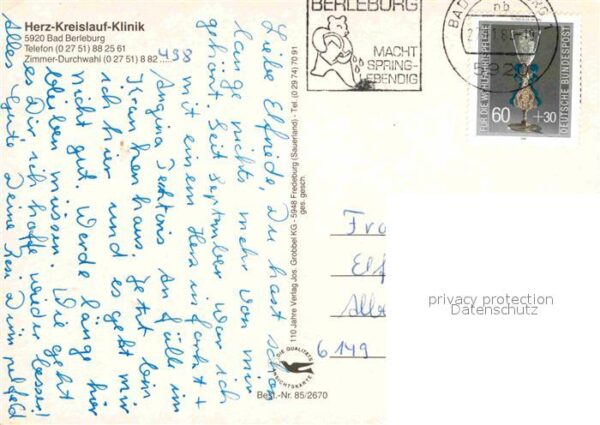 Herz-Kreislauf-Klinik
5920 Bad Berleburg
Telefon (0 27 51) 88 25 61
Zimmer-Durchwahl (0 27 51) 8 82 ..... 798
Liebe Elfriede, Du hast schon
lange nichts mehr von mir
gehört. Seit September war ich
mit einem Herzinfarkt +
Angina Pectoris Anfälle im
Krankenhaus. Jetzt bin
ich hier und es geht mir
nicht gut. Werde länger hier
bleiben müssen. Wie geht
es Dir ich hoffe wieder besser!
Alles Gute Deine Resi
110 Jahre Verlag Jos. Grobbel KG - 5948 Fredeburg (Sauerland) - Tel. (0 29 74) 70 91
ges. gesch.
BERLEBURG
MACHT
SPRING-
LEBENDIG
BAD
nb
5920
FÜR DIE WOHLFAHRTSPFLEGE
60 +30
DEUTSCHE BUNDESPOST
Fra
Elf
6149
privacy protection
Datenschutz
DIE QUALITÄTS
ANSICHTSKARTE
Best.-Nr. 85/2670